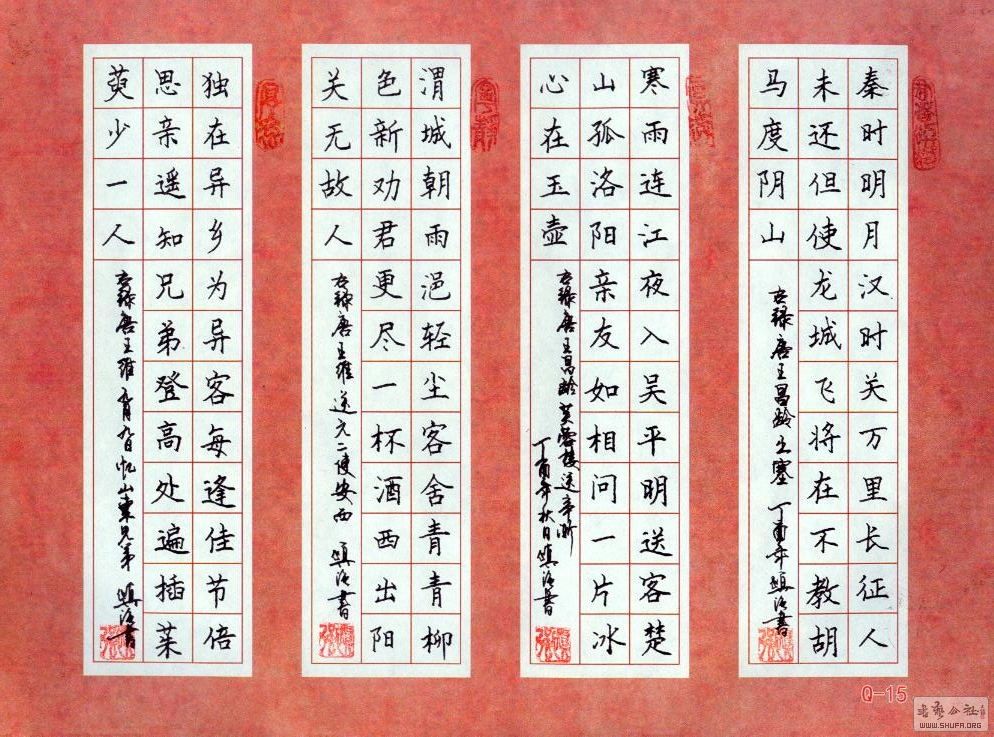 秦时明月汉时关万里长征人
未还但使龙城飞将在不教胡
马度阴山
右录唐王昌龄出塞 丁酉年 书
寒雨连江夜入吴平明送客楚
山孤洛阳亲友如相问一片冰
心在玉壶
右录唐王昌龄芙蓉楼送辛渐
丁酉年秋月 书
渭城朝雨浥轻尘客舍青青柳
色新劝君更尽一杯酒西出阳
关无故人
右录唐王维送元二使安西 书
独在异乡为异客每逢佳节倍
思亲遥知兄弟登高处遍插茱
萸少一人
右录唐王维九月九日忆山东兄弟 书
Q-15
书艺公社
WWW.SHUFA.ORG